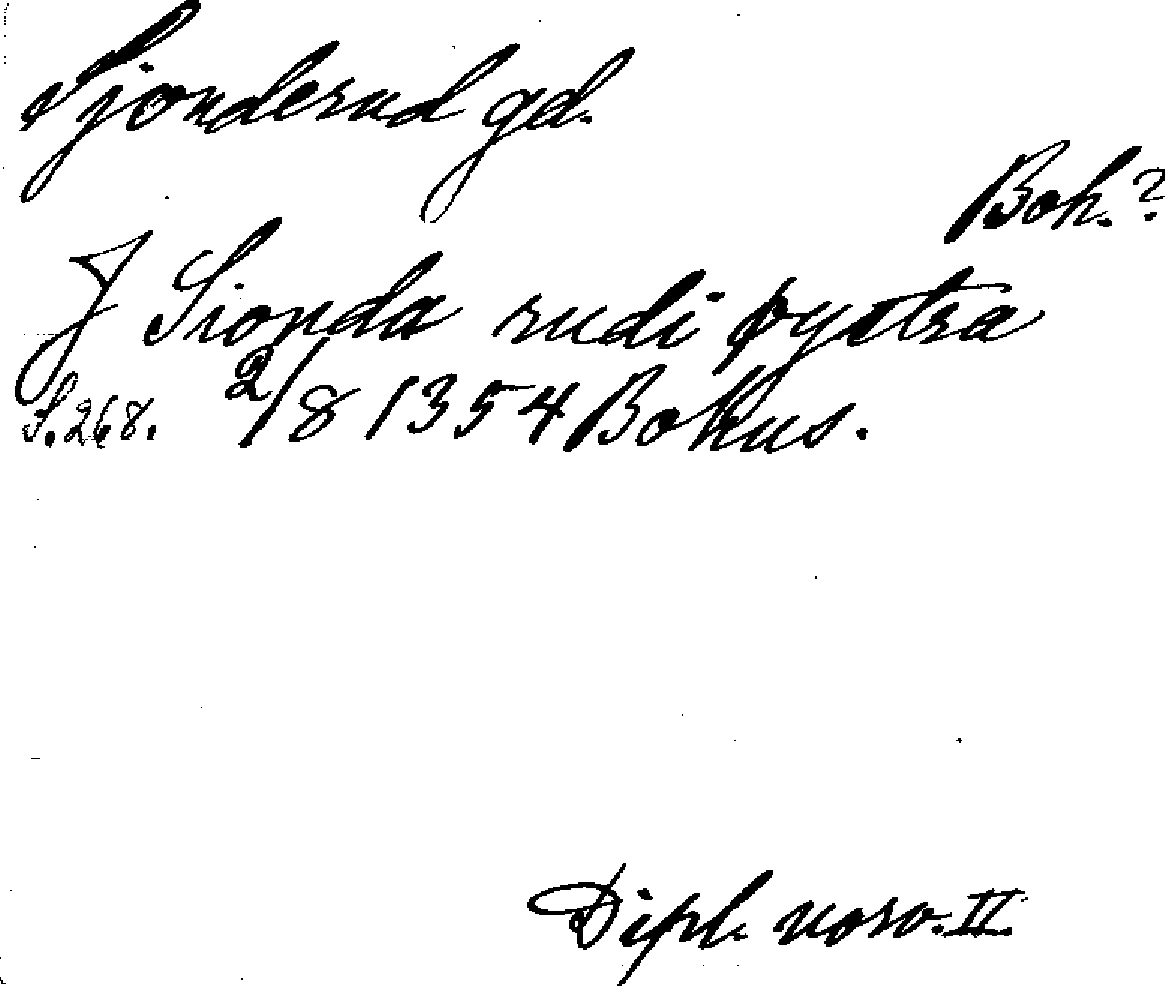 Sjonderud gd.
Boh.?
J Sionda rudi øystra
S.268. 2/8 1354 Bohus.
Dipl. norv. II.